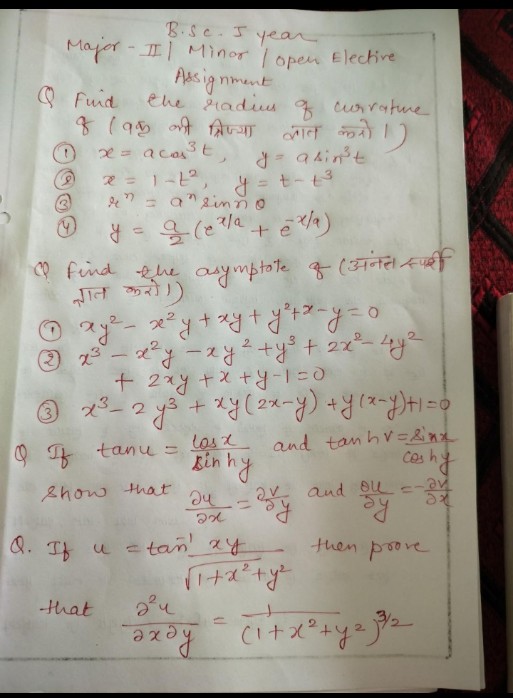 B.Sc. I year
Major - II / Minor / open Elective
Assignment
Q Find the radius of curvature
of (वक्र की त्रिज्या ज्ञात करो।)
① x = a cos³t, y = a sin³t
② x = 1-t², y = t-t³
③ rⁿ = aⁿ sin nθ
④ y = a/2 (e^x/a + e^-x/a)
Q find the asymptote of (अनंत स्पर्शी
ज्ञात करो।)
① xy² - x²y + xy + y² + x - y = 0
② x³ - x²y - xy² + y³ + 2x² - 4y²
+ 2xy + x + y - 1 = 0
③ x³ - 2y³ + xy(2x-y) + y(x-y) + 1 = 0
Q If tan u = cos x / sin hy and tan hv = sin x / cos hy
show that ∂u/∂x = ∂v/∂y and ∂u/∂y = -∂v/∂x
Q. If u = tan⁻¹ xy / √1+x²+y² then prove
that ∂²u/∂x∂y = 1/(1+x²+y²)^3/2